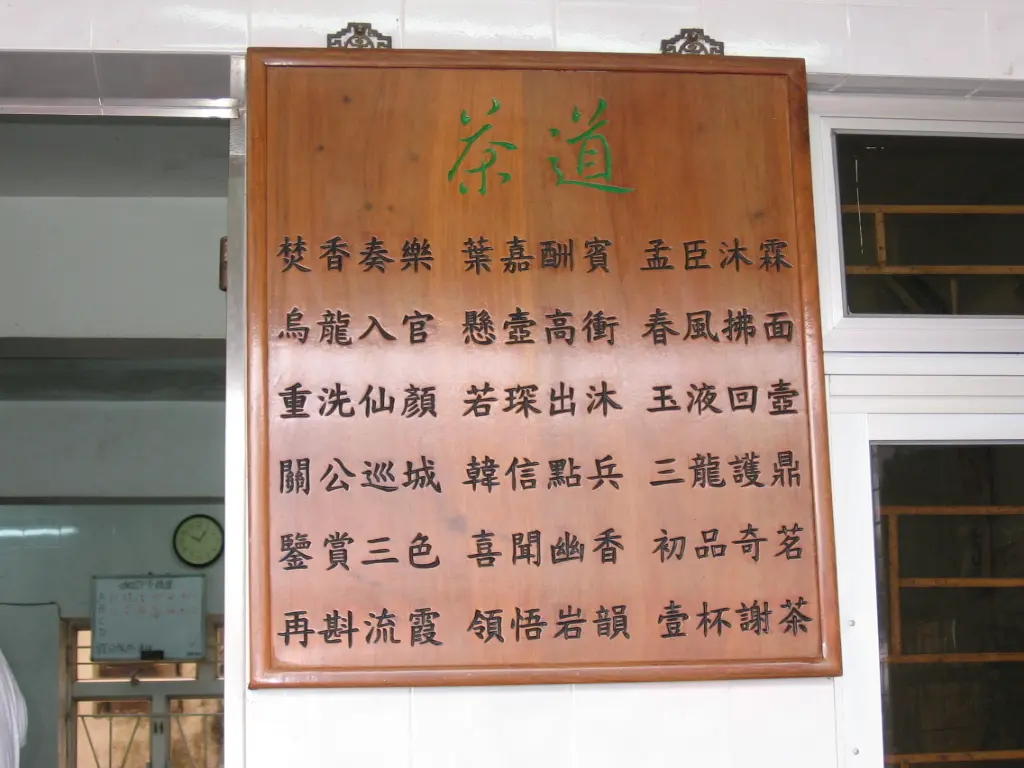 茶道
焚香奏樂 葉嘉酬賓 孟臣沐霖
烏龍入宮 懸壺高衝 春風拂面
重洗仙顏 若琛出沐 玉液回壺
關公巡城 韓信點兵 三龍護鼎
鑒賞三色 喜聞幽香 初品奇茗
再斟流霞 領悟岩韻 壹杯謝茶